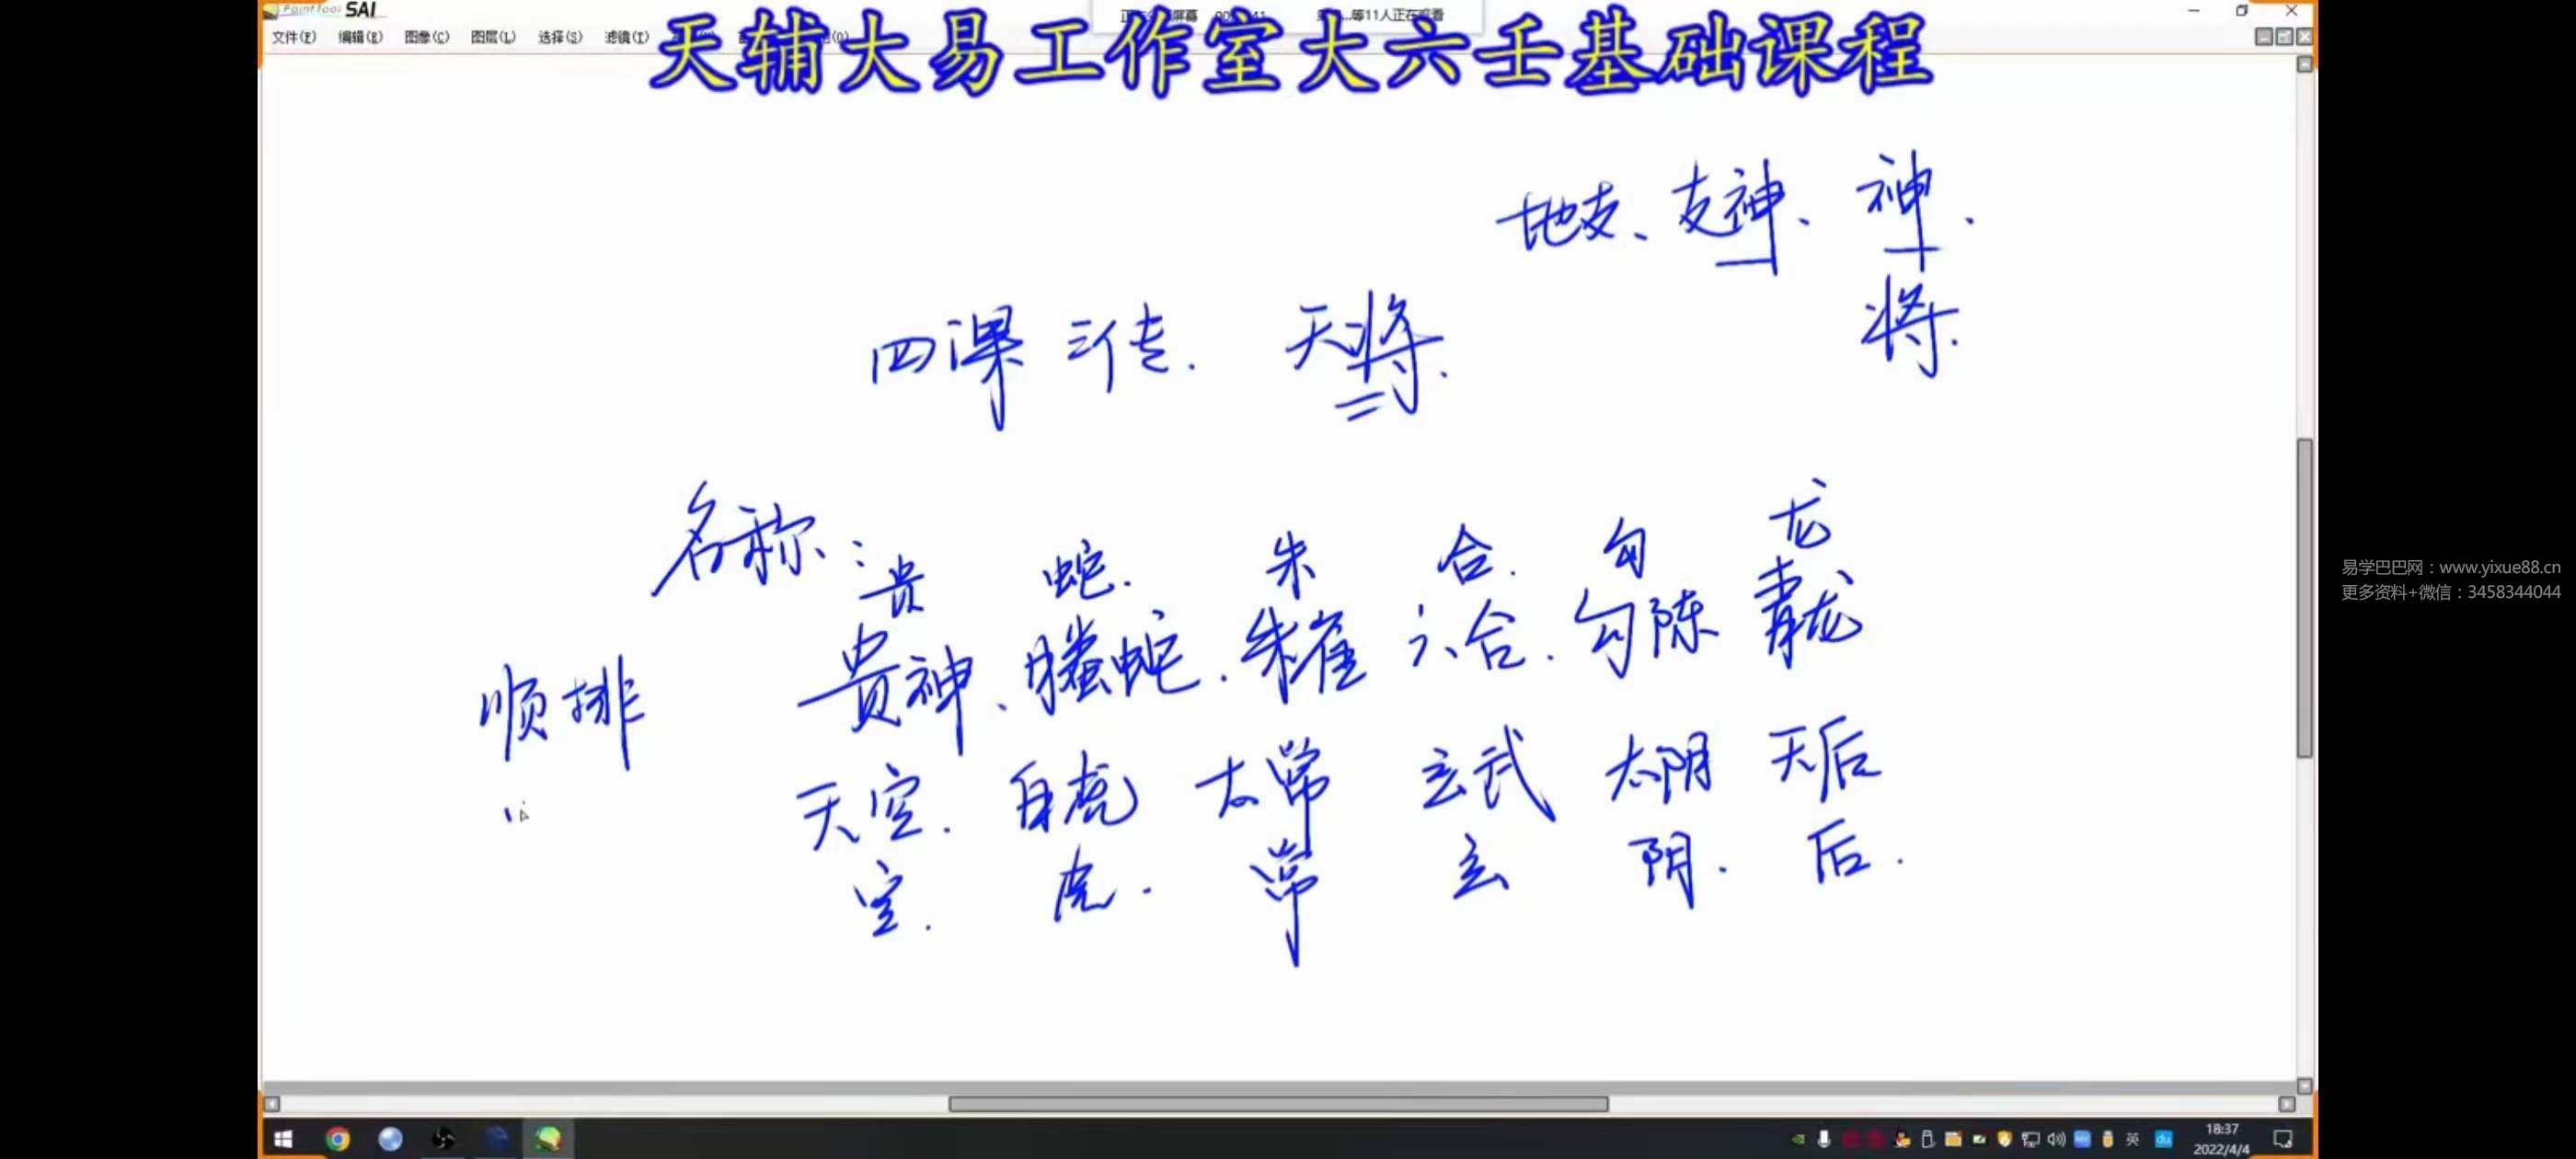 PaintTool SAI
文件(F) 编辑(E) 图像(C) 图层(L) 选择(S) 滤镜(T)
等11人正在观看
天辅大易工作室大六壬基础课程
地支、支神、神.
将.
四课 三传. 天将.
名称:
贵 蛇. 朱 合. 勾 龙
贵神、螣蛇. 朱雀 六合. 勾陈 青龙
顺排
天空. 白虎 太常 玄武 太阴 天后
空. 虎. 常 玄 阴. 后.
易学巴巴网:www.yixue88.cn
更多资料+微信:3458344044
英
du
18:37
2022/4/4